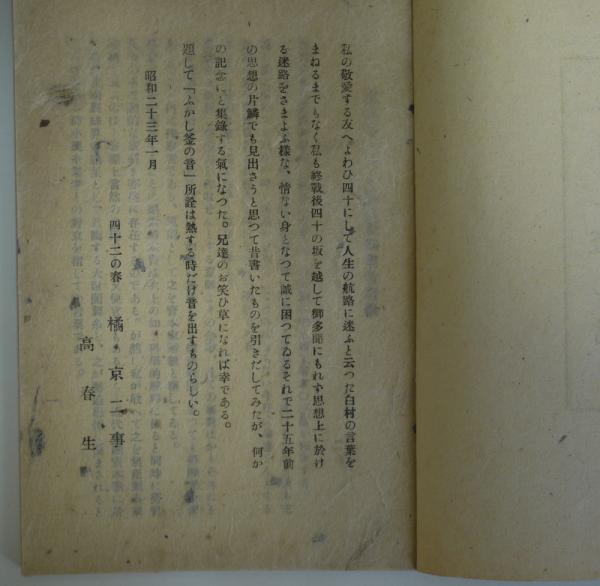 私の敬愛する友へよわひ四十にして人生の航路に迷ふと云つた白村の言葉を
まねるまでもなく私も終戰後四十の坂を越して御多聞にもれず思想上に於け
る迷路をさまよふ樣な、情ない身となつて誠に困つてゐるそれで二十五年前
の思想の片鱗でも見出さうと思つて昔書いたものを引きだしてみたが、何か
の記念にと集錄する氣になつた。兄達のお笑ひ草になれば幸である。
題して「ふかし釜の音」所詮は熱する時だけ音を出すものらしい。
昭和二十三年一月
四十二の春 橘京二事
高春生